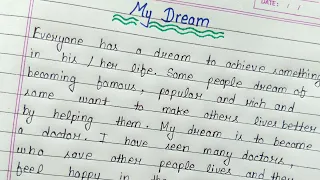 DATE: / /
My Dream
Everyone has a dream to achieve something
in his / her life. Some people dream of
becoming famous, popular and rich and
some want to make others lives better
by helping them. My dream is to become
a doctor. I have seen many doctors,
who save other people lives and they
feel happy in the